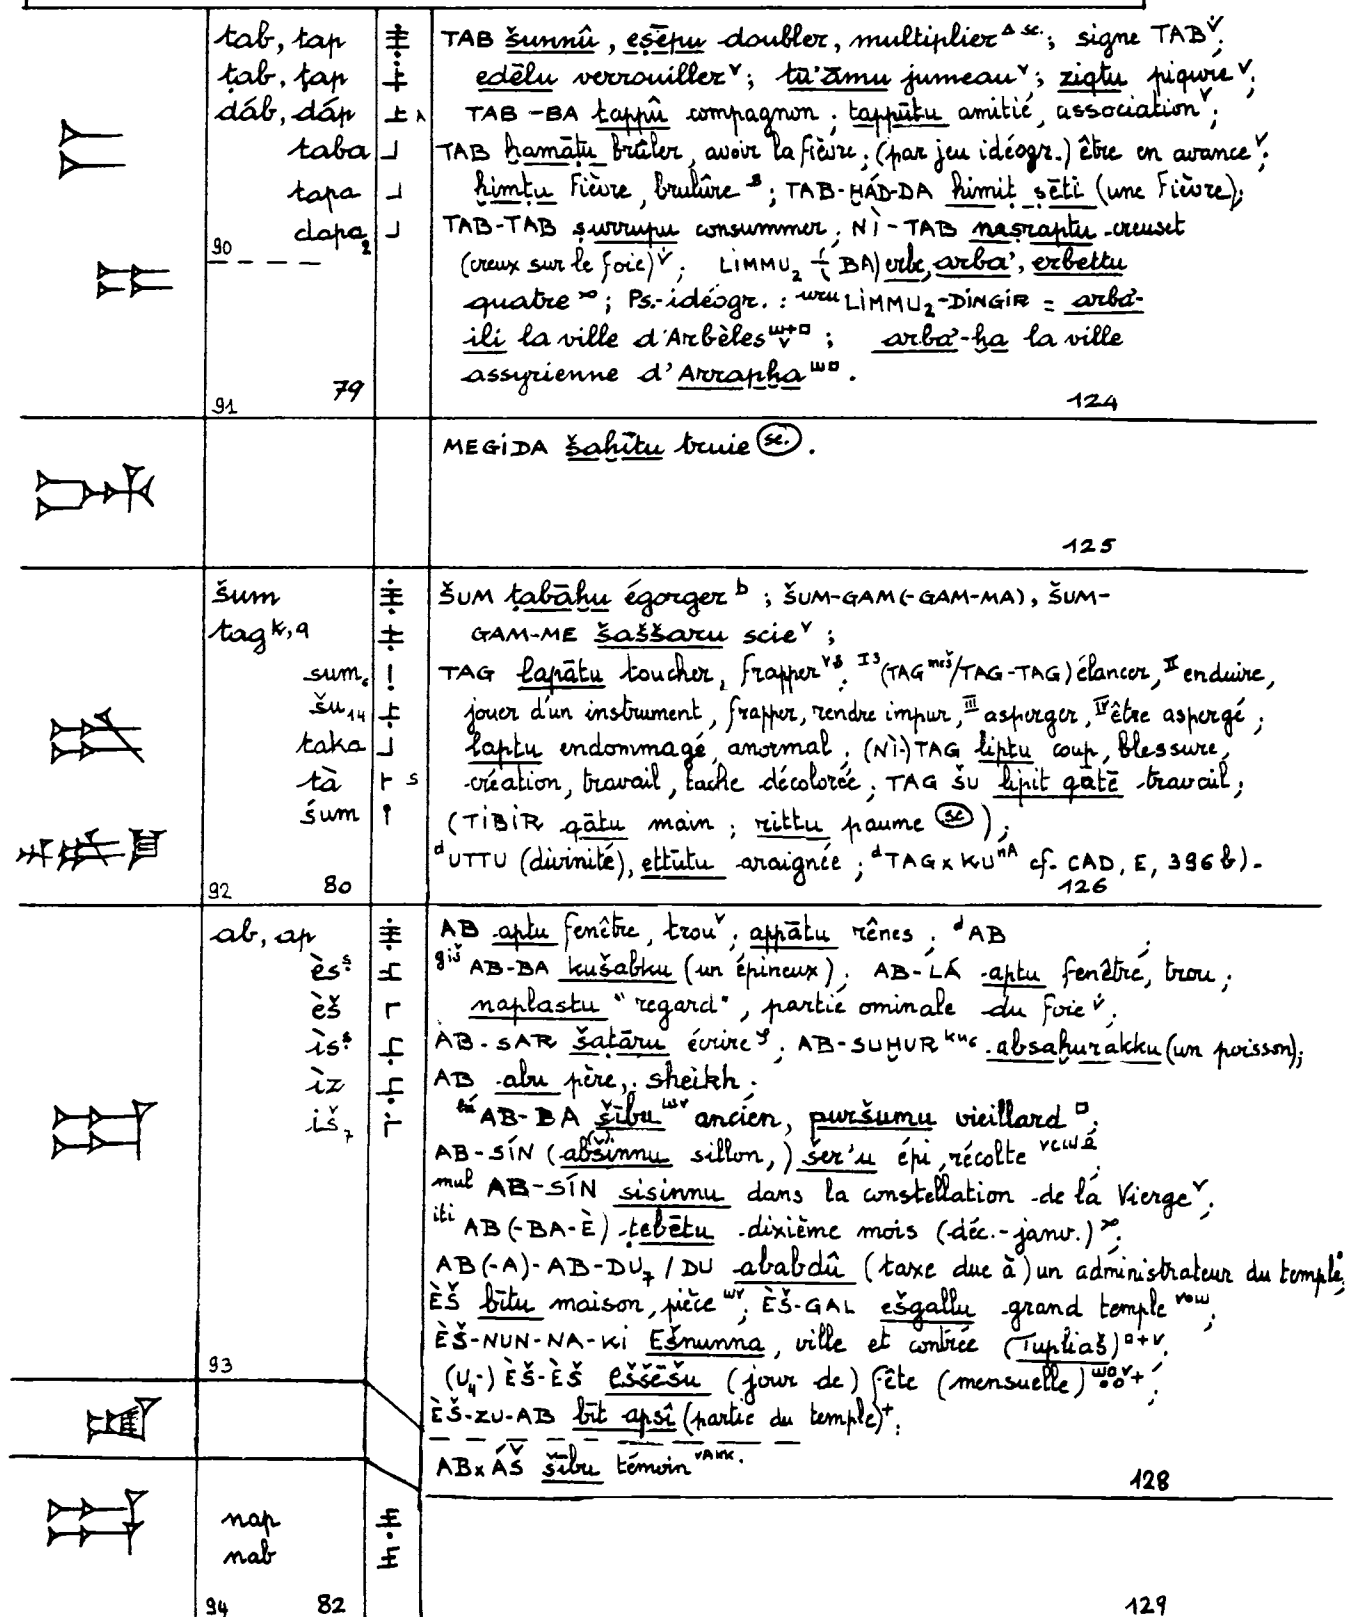 tab, tap TAB šunnû, eṣēpu doubler, multiplier ; signe TAB ;
ṭab, ṭap edēlu verrouiller ; tū'āmu jumeau ; ziqtu piqûre ;
dáb, dáp TAB-BA tappû compagnon ; tappûtu amitié, association ;
taba TAB ḫamāṭu brûler, avoir la fièvre ; (par jeu idéogr.) être en avance ;
tapa ḫimṭu fièvre, brulûre ; TAB-ḪÁD-DA ḫimiṭ ṣēti (une fièvre) ;
dapa₂ TAB-TAB ṣurrupu consummer ; NÌ-TAB naṣraptu creuset
90 (creux sur le foie) ; LIMMU₂ (-BA) erbe, arba', erbettu
quatre ; Ps.-idéogr. : uru LIMMU₂-DINGIR = arba-
ili la ville d'Arbèles ; arba'-ḫa la ville
assyrienne d'Arrapḫa .
91 79 124
MEGIDA šaḫītu truie (sc.) .
125
šum ŠUM ṭabāḫu égorger b ; ŠUM-GAM(-GAM-MA), ŠUM-
tag k, q GAM-ME šaššaru scie v ;
sum₆ TAG lapātu toucher, frapper ; I3 (TAG meš/TAG-TAG) élancer, II enduire,
šu₁₄ jouer d'un instrument, frapper, rendre impur, III asperger, IV être aspergé ;
taka laptu endommagé, anormal ; (NÌ-)TAG liptu coup, blessure,
tà création, travail, tache décolorée ; TAG ŠU lipit qātē travail ;
śum (TIBIR qātu main ; rittu paume (sc)) ;
d UTTU (divinité), ettūtu araignée ; d TAG x KU nA cf. CAD, E, 396 b) .
92 80 126
ab, ap AB aptu fenêtre, trou v ; appātu rênes ; d AB ;
ès giš AB-BA kušabku (un épineux) ; AB-LÁ aptu fenêtre, trou ;
èš naplastu "regard", partie ominale du foie v ;
ìs AB-SAR šaṭāru écrire ; AB-SUḪUR ku₆ absaḫurakku (un poisson) ;
ìz AB abu père, sheikh .
iš₇ lú AB-BA šību ancien, puršumu vieillard ;
AB-SÍN (absinnu sillon,) šer'u épi, récolte
mul AB-SÍN sisinnu dans la constellation de la Vierge v ;
iti AB(-BA-È) ṭebētu dixième mois (déc.-janv.) ;
AB(-A)-AB-DU₇ / DU ababdû (taxe due à) un administrateur du temple ;
ÈŠ bītu maison, pièce ; ÈŠ-GAL ešgallu grand temple ;
ÈŠ-NUN-NA-KI Ešnunna, ville et contrée (Tupliaš) ;
93 (U₄-) ÈŠ-ÈŠ eššēšu (jour de) fête (mensuelle) ;
ÈŠ-ZU-AB bīt apsî (partie du temple) + .
ABxÁŠ šību témoin .
128
nap
nab
94 82 129